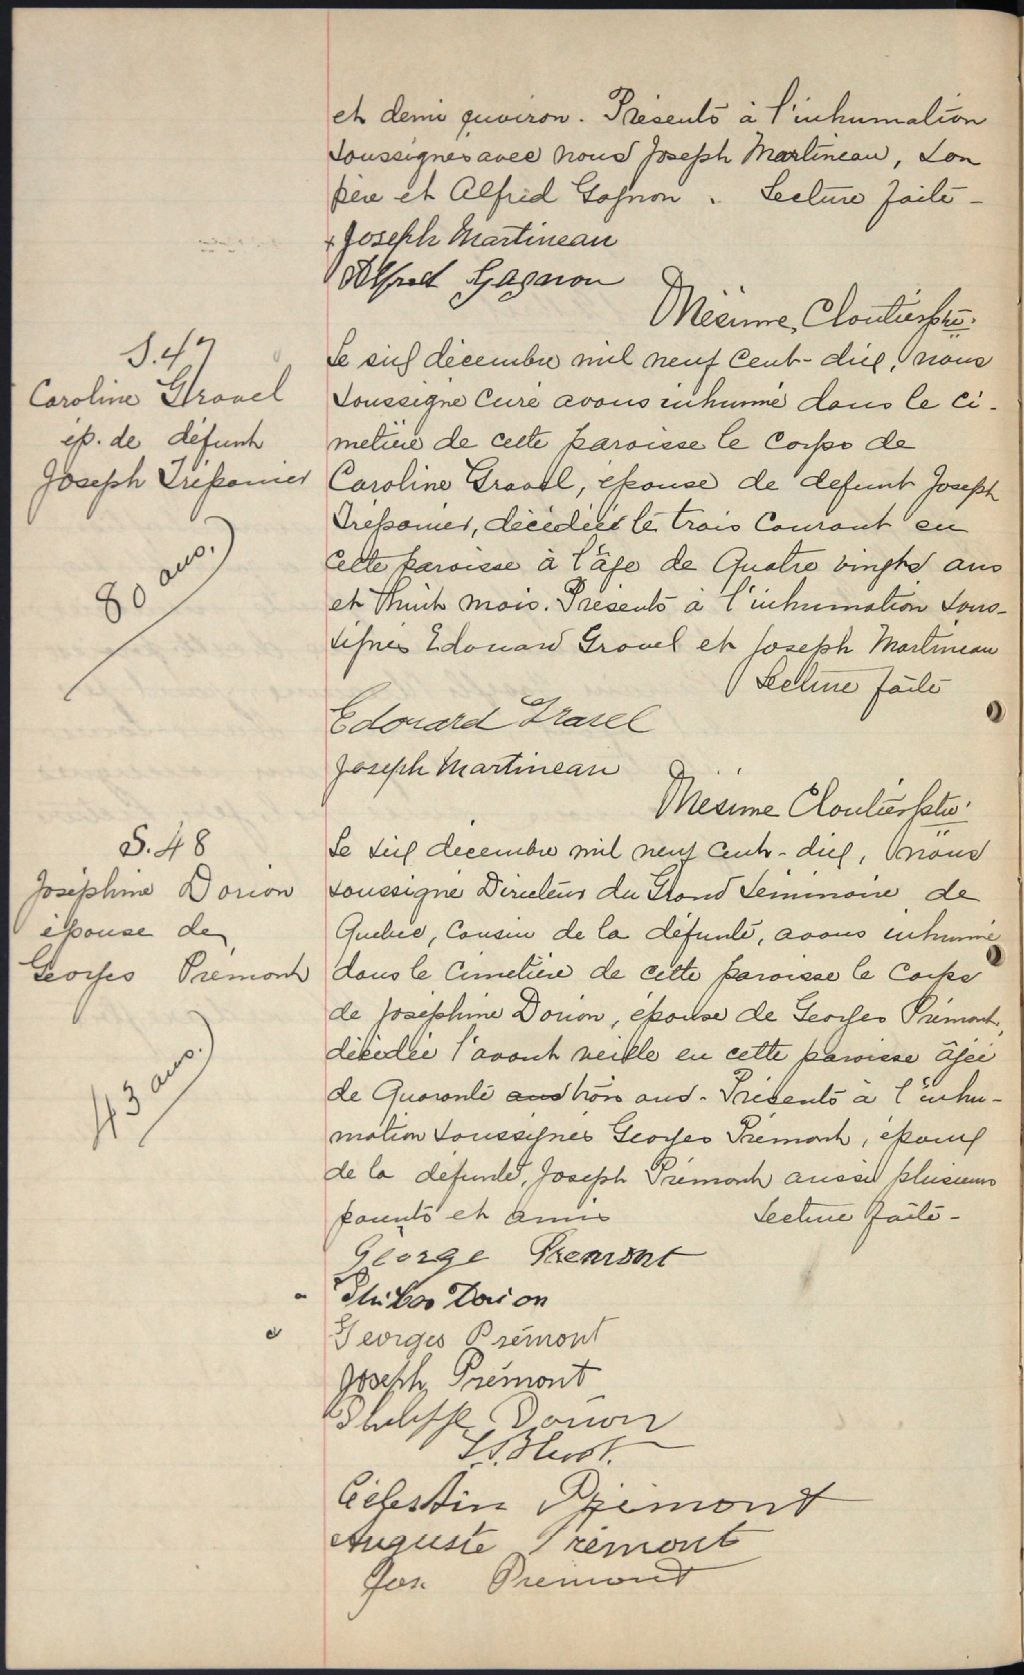 et demi environ. Présents à l'inhumation
soussignés avec nous Joseph Martineau, son
père et Alfred Gagnon. Lecture faite -
Joseph Martineau
Alfred Gagnon
Mésime Cloutier ptre.
S. 47
Caroline Gravel
ép. de défunt
Joseph Trépanier
80 ans.)
Le six décembre mil neuf cent-dix, nous
soussigné Curé avons inhumé dans le ci-
metière de cette paroisse le corps de
Caroline Gravel, épouse de defunt Joseph
Trépanier, décédée le trois courant en
cette paroisse à l'âge de Quatre vingts ans
et huit mois. Présents à l'inhumation sous-
signés Edouard Gravel et Joseph Martineau
Lecture faite
Edouard Gravel
Joseph Martineau
Mésime Cloutier ptre.
S. 48
Joséphine Dorion
épouse de
Georges Prémont
43 ans.)
Le six décembre mil neuf cent-dix, nous
soussigné Directeur du Grand Séminaire de
Quebec, cousin de la défunte, avons inhumé
dans le cimetière de cette paroisse le corps
de Joséphine Dorion, épouse de Georges Prémont,
décédée l'avant veille en cette paroisse âgée
de Quarante ans trois ans. Présents à l'inhu-
mation soussignés Georges Prémont, époux
de la défunte, Joseph Prémont aussi plusieurs
parents et amis Lecture faite -
George Premont
Dorion
Georges Prémont
Joseph Prémont
Philippe Dorion
Célestin Prémont
Auguste Prémont
Jos. Premont